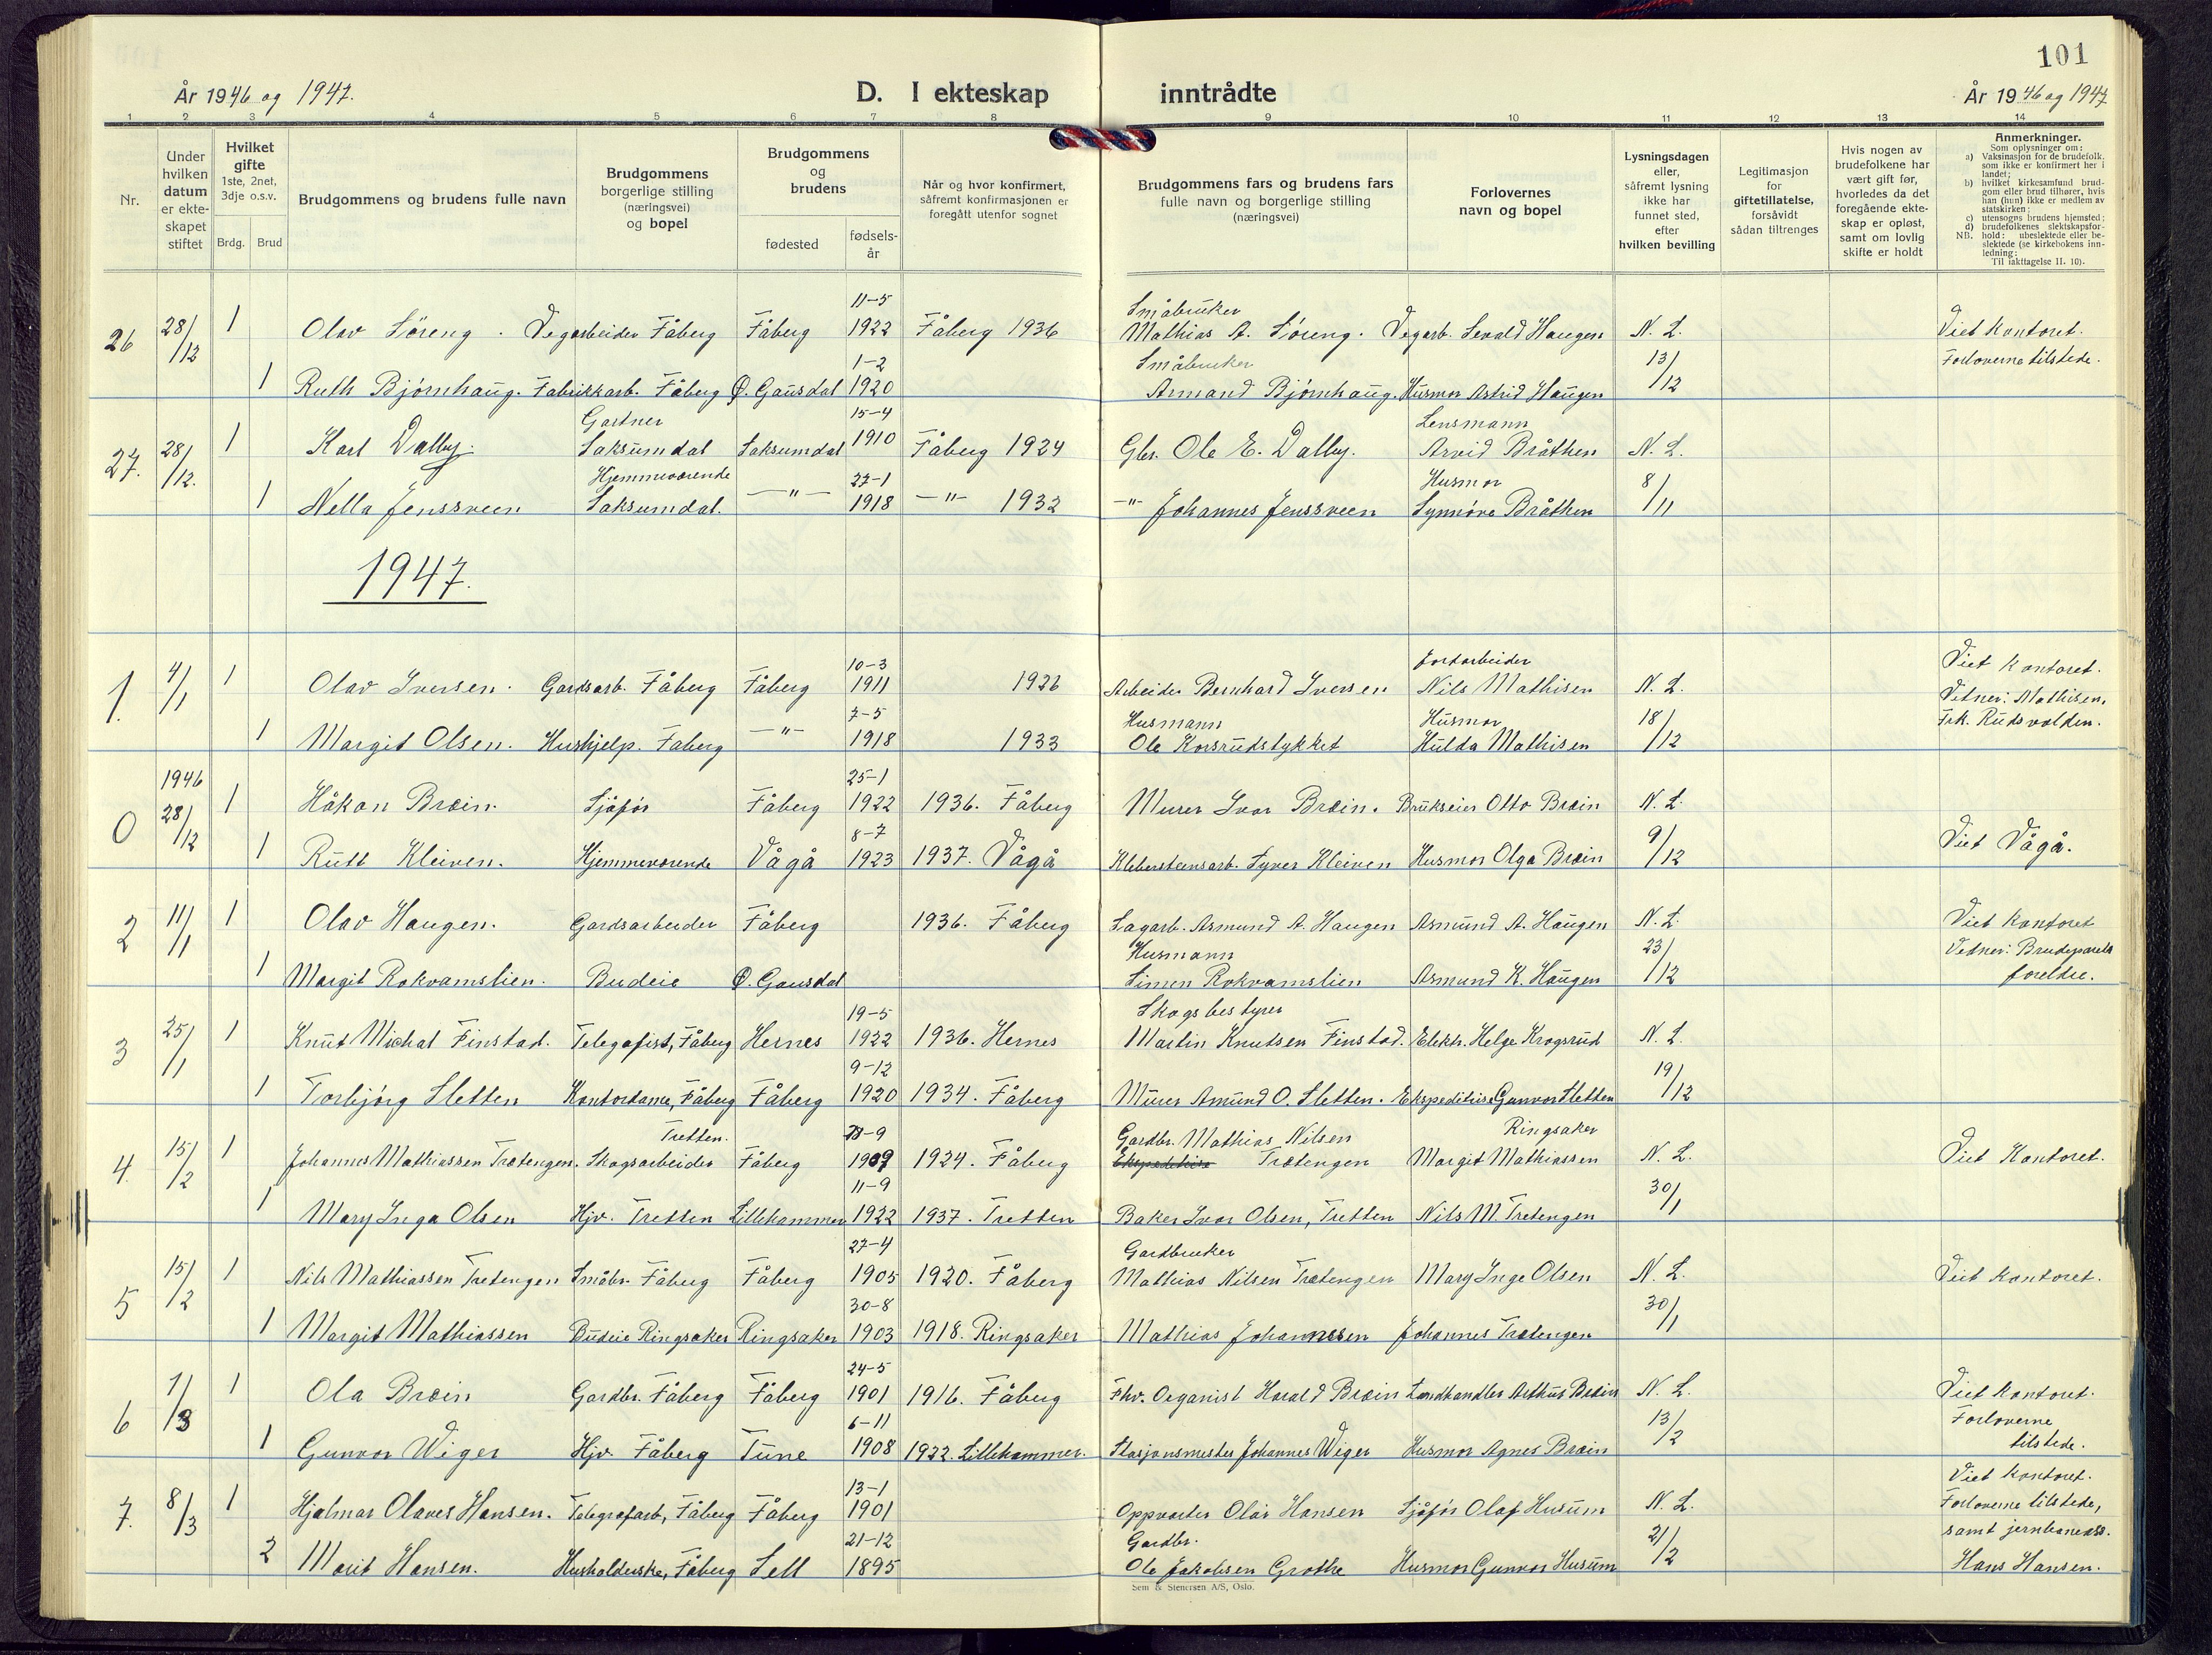 101
År 1946 og 1947.
D. I ekteskap inntrådte
År 1946 og 1947
1 2 3 4 5 6 7 8 9 10 11 12 13 14
Nr.
Under hvilken datum er ekteskapet stiftet
Hvilket gifte 1ste, 2net, 3dje o.s.v.
Brdg. Brud
Brudgommens og brudens fulle navn
Brudgommens borgerlige stilling (næringsvei) og bopel
Brudgommens og brudens
fødested
fødselsår
Når og hvor konfirmert, såfremt konfirmasjonen er foregått utenfor sognet
Brudgommens fars og brudens fars fulle navn og borgerlige stilling (næringsvei)
Forlovernes navn og bopel
Lysningsdagen eller, såfremt lysning ikke har funnet sted, efter hvilken bevilling
Legitimasjon for giftetillatelse, forsåvidt sådan tiltrenges
Hvis nogen av brudefolkene har vært gift før, hvorledes da det foregående ekteskap er opløst, samt om lovlig skifte er holdt
Anmerkninger.
Som oplysninger om:
a) Vaksinasjon for de brudefolk. som ikke er konfirmert her i landet;
b) hvilket kirkesamfund brudgom eller brud tilhører, hvis han (hun) ikke er medlem av statskirken;
c) utensogns brudens hjemsted;
d) brudefolkenes slektskapsforhold: ubeslektede eller beslektede (se kirkebokens innledning:
NB.
Til iakttagelse II. 10).
11-5 Småbruker
26 28/12 1 Olav Søreng. Vegarbeider Fåberg Fåberg 1922 Fåberg 1936 Mathias A. Søreng. Vegarb. Sevald Haugen N. L. Viet kontoret.
1-2 Småbruker 13/12 Forloverne tilstede.
1 Ruth Bjørnhaug. Fabrikkarb. Fåberg Ø. Gausdal 1920 Armand Bjørnhaug. Husmor Astrid Haugen
Gartner 15-4 Lensmann
27. 28/12. 1 Karl Dalby. Saksumdal Saksumdal 1910 Fåberg 1924 Gbr. Ole E. Dalby. Arvid Bråthen N. L.
Hjemmeværende 27-1 Husmor 8/11
1 Nella Jenssveen Saksumdal. —"— 1918 —"— 1932 —"— Johannes Jenssveen Synnøve Bråthen
1947.
10-3 Jordarbeider Viet kontoret.
1. 4/1 1 Olav Iversen. Gardsarb. Fåberg Fåberg 1911 1926 Arbeider Bernhard Iversen Nils Mathisen N. L. Vitner: Mathisen,
7-5 Husmann Husmor 18/12 Frk. Rudsvolden.
1 Margit Olsen. Hushjelp. Fåberg —"— 1918 1933 Ole Korsrudstykket Hulda Mathisen
1946 25-1
0 28/12 1 Håkon Bræin. Sjåfør Fåberg 1922 1936. Fåberg Murer Ivar Bræin. Brukseier Otto Bræin N. L.
8-7 9/12 Viet Vågå.
1 Rutt Kleiven. Hjemmeværende Vågå 1923 1937. Vågå Klebersteinsarb. Syver Kleiven Husmor Olga Bræin
2 11/1 1 Olav Haugen. Gardsarbeider Fåberg 1936. Fåberg Sagarb. Asmund A. Haugen Asmund A. Haugen N. L. Viet kontoret
Husmann 23/12 Vitner: Brudeparets
1 Margit Rokvamslien. Budeie Ø. Gausdal Simen Rokvamslien Asmund K. Haugen foreldre.
19-5 Skogsbestyrer
3 25/1 1 Knut Michal Finstad. Telegafist, Fåberg Hernes 1922 1936. Hernes Martin Knutsen Finstad. Elektr. Helge Krogsrud N. L.
9-12 19/12
1 Torbjørg Sletten Kontordame, Fåberg Fåberg 1920 1934. Fåberg Murer Amund O. Sletten. Ekspeditrise Gunvor Sletten
Tretten. -9 Gardbr. Mathias Nilsen Ringsaker
4. 15/2 1 Johannes Mathiassen Trætengen. Skogsarbeider Fåberg 1909 1924. Fåberg Ekspeditrise Trætengen Margit Mathiassen N. L. Viet Kontoret.
11-9 30/1
1 Mary Inga Olsen Hjv. Tretten Lillehammer 1922 1937. Tretten Baker Ivar Olsen, Tretten Nils M. Tretengen
27-4 Gardbruker
5 15/2 1 Nils Mathiassen Tretengen Småbr. Fåberg Fåberg 1905 1920. Fåberg Mathias Nilsen Trætengen Mary Inge Olsen N. L. Viet kontoret.
30-8 30/1
1 Margit Mathiassen Budeie Ringsaker Ringsaker 1903 1918. Ringsaker Mathias Johanssen Johannes Trætengen
24-5
6 1/3 1 Ola Bræin Gardbr. Fåberg Fåberg 1901 1916. Fåberg Fhv. Organist Harald Bræin Landhandler Arthur Bræin N. L. Viet kontoret.
6-11 13/2 Forloverne
1 Gunvor Wiger Hjv. Fåberg Tune 1908 1922. Lillehammer. Stasjonsmester Johannes Wiger Husmor Agnes Bræin tilstede.
13-1 Viet kontoret.
7. 8/3 1 Hjalmar Olaves Hansen. Telegrafarb, Fåberg Fåberg 1901 Oppvarter Olai Hansen Sjåfør Olaf Husum N. L. Forloverne tilstede,
21-12 Gardbr. 21/2 samt jernbaneass.
2 Marit Hansen. Husholderske, Fåberg Sell 1895 Ole Jakobsen Grothe Husmor Gunvor Husum Hans Hansen.
Sem & Stenersen A/S, Oslo.